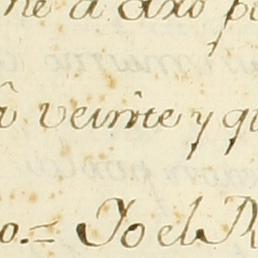 ne a dxo p
à veinte y qu
o.= Yo el R